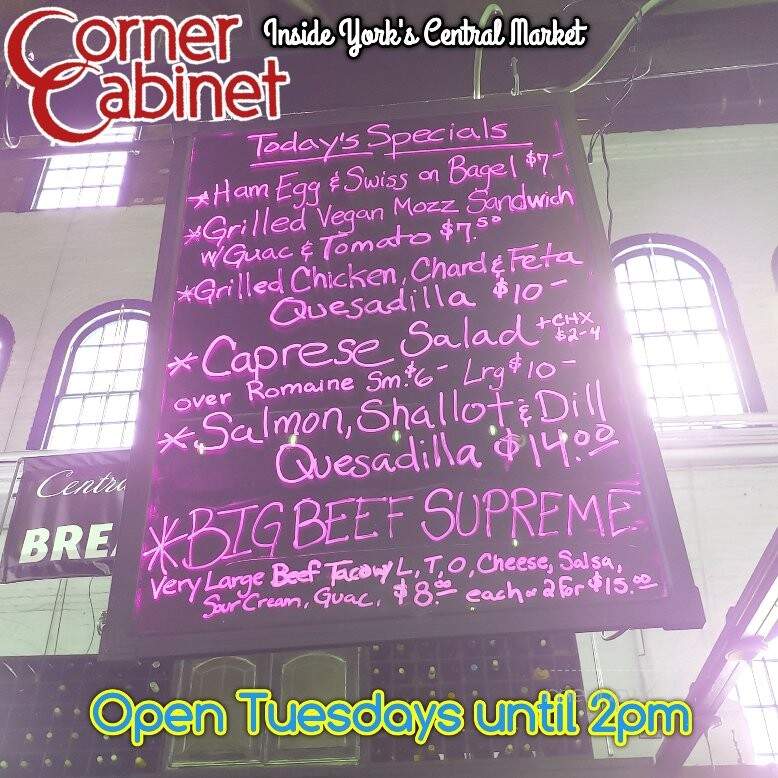 Corner Cabinet
Inside York's Central Market
Today's Specials
*Ham Egg & Swiss on Bagel $7-
*Grilled Vegan Mozz Sandwich
w/Guac & Tomato $7.50
*Grilled Chicken, Chard & Feta
Quesadilla $10-
*Caprese Salad +CHX $2-4
over Romaine Sm.$6- Lrg $10-
*Salmon, Shallot & Dill
Quesadilla $14.00
*BIG BEEF SUPREME-
Very Large Beef Taco w/ L, T, O, Cheese, Salsa,
Sour Cream, Guac, $8.00 each or 2 for $15.00
Centra
BREA
Open Tuesdays until 2pm